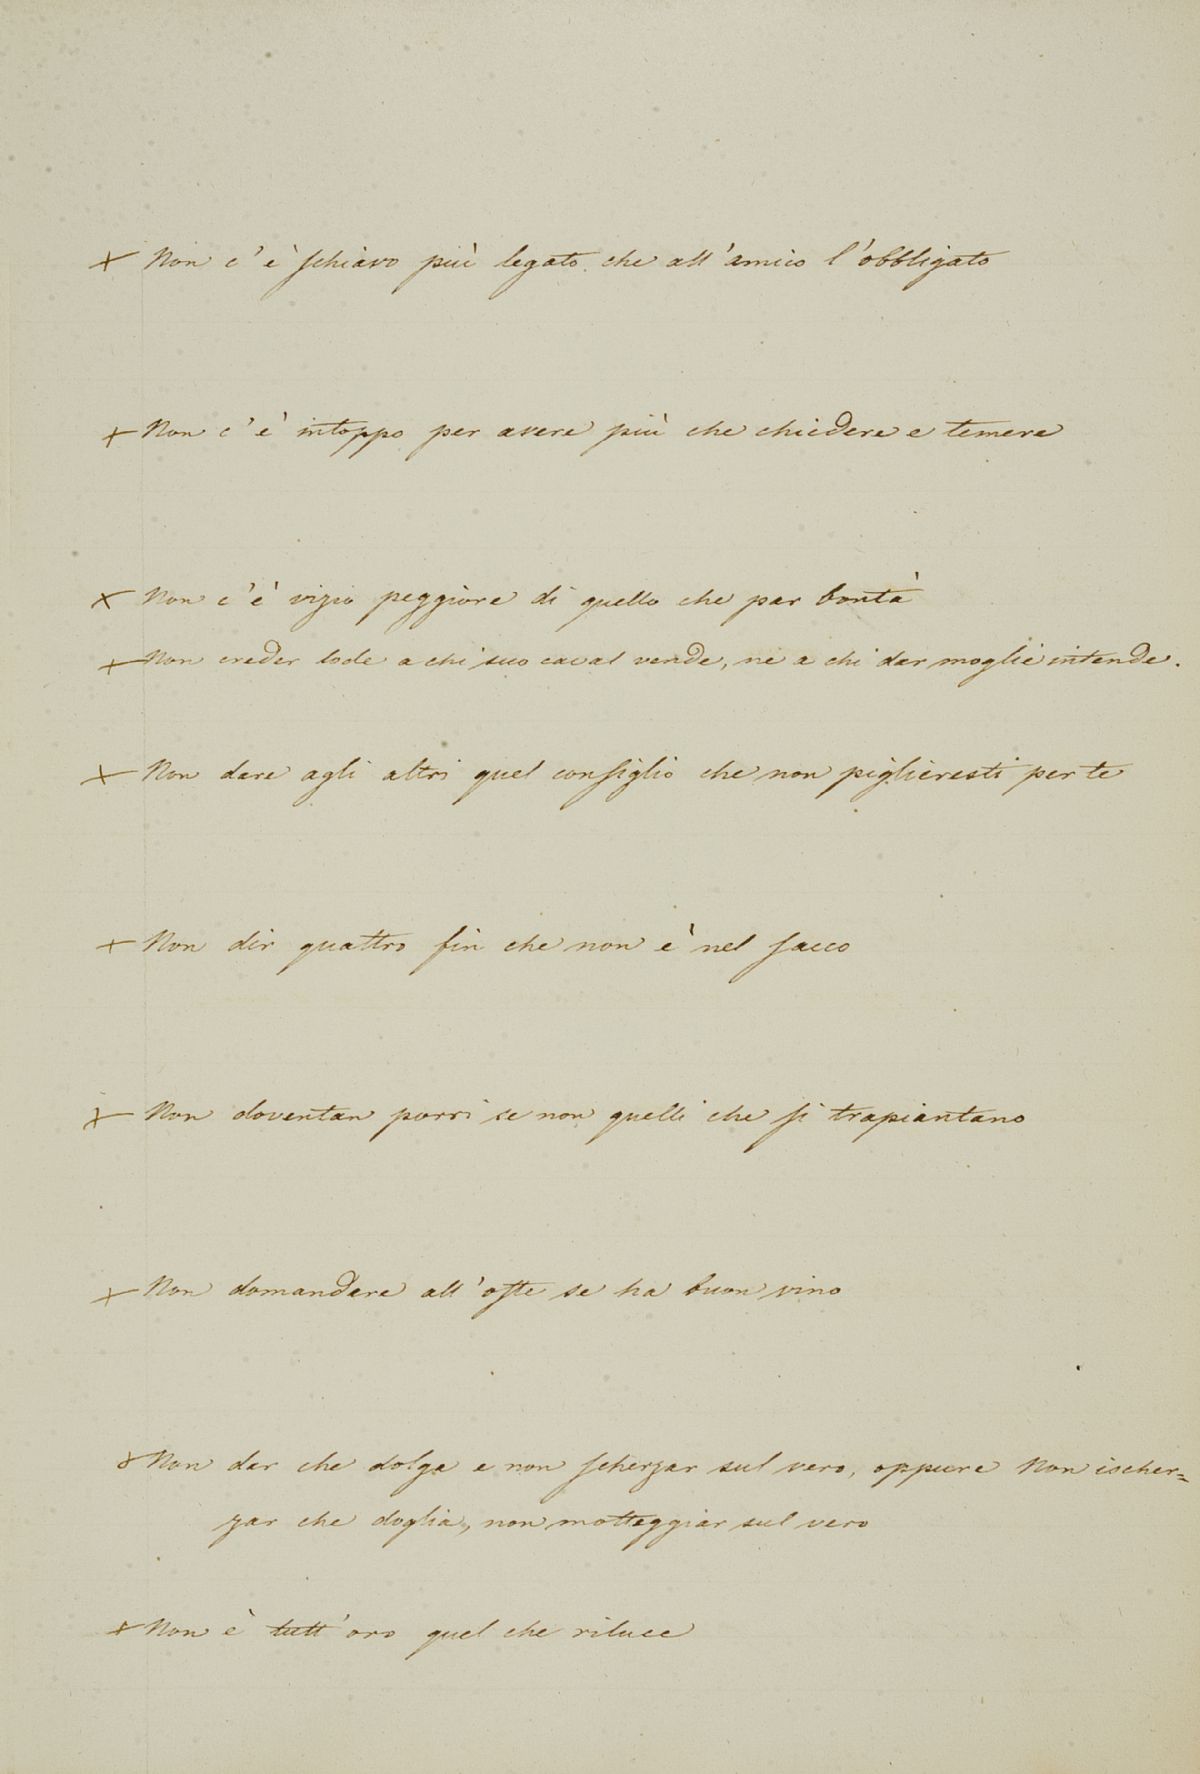 + Non c'è schiavo più legato che all'amico l'obbligato
+ Non c'è intoppo per avere più che chiedere e temere
+ Non c'è vizio peggiore di quello che par bontà
+ Non creder lode a chi suo caval vende, nè a chi dar moglie intende.
+ Non dare agli altri quel consiglio che non piglieresti per te
+ Non dir quattro fin che non è nel sacco
+ Non doventan porri se non quelli che si trapiantano
+ Non domandare all'oste se ha buon vino
+ Non dar che dolga e non scherzar sul vero, oppure Non ischer=
zar che doglia, non motteggiar sul vero
+ Non è tutt'oro quel che riluce